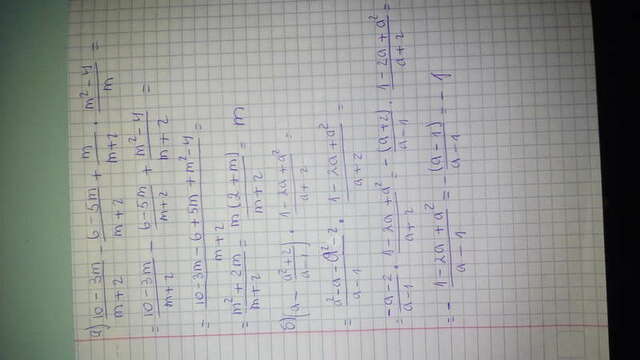 а) (10 - 3m)/(m + 2) - (6 - 5m)/(m + 2) + m/(m + 2) · (m² - 4)/m =
= (10 - 3m)/(m + 2) - (6 - 5m)/(m + 2) + (m² - 4)/(m + 2) =
= (10 - 3m - 6 + 5m + m² - 4)/(m + 2) =
= (m² + 2m)/(m + 2) = m(2 + m)/(m + 2) = m
б) (a - (a² + 2)/(a - 1)) · (1 - 2a + a²)/(a + 2) =
= (a² - a - a² - 2)/(a - 1) · (1 - 2a + a²)/(a + 2) =
= (-a - 2)/(a - 1) · (1 - 2a + a²)/(a + 2) = -(a + 2)/(a - 1) · (1 - 2a + a²)/(a + 2) =
= - (1 - 2a + a²)/(a - 1) = -(a - 1)/(a - 1) = - 1